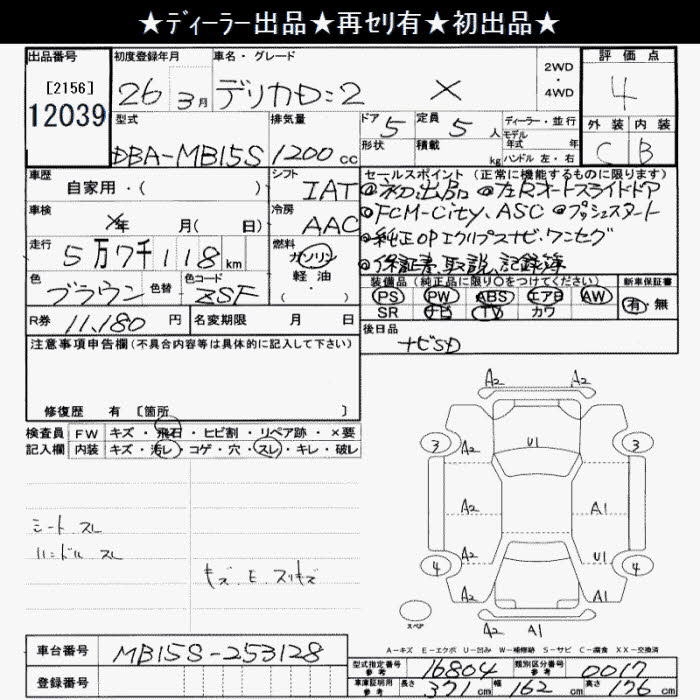 ★ディーラー出品★再セリ有★初出品★
出品番号 初度登録年月 車名・グレード 2WD・4WD 評価点
[2156] 26年 3月 デリカD:2 X 4
12039 型式 排気量 ドア 5 定員 5人 ディーラー・並行 外装 内装
モデル年式 年
DBA-MB15S 1200cc 形状 積載 kg ハンドル 左・右 C B
車歴 シフト セールスポイント (正常に機能するものに限ります)
自家用・( ) IAT ◎初出品 ◎左Rオートスライドドア
車検 冷房 ◎FCM-City、ASC ◎プッシュスタート
年 月( 日) AAC ◎純正OPエクリプスナビ、ワンセグ
走行 燃料 ◎保証書、取説、記録簿
5万7千118km ガソリン
軽油
( ・ )
色 色替 色コード 装備品 (純正品に限り○をつけてください) 新車保証書
ブラウン ZSF PS PW ABS エアB AW 有・無
SR ナビ TV カワ
R券 11,180円 名変期限 月 日 後日品
ナビSD
注意事項申告欄(不具合内容等は具体的に記入して下さい)
修復歴 有 [箇所 ]
検査員 FW キズ・飛石・ヒビ割・リペア跡・×要
記入欄 内装 キズ・汚レ・コゲ・穴・スレ・キレ・破レ
シート スレ
ハンドル スレ
キズ・E・スリキズ
A2 A2
3 U1 3
A2
A2 A1
A2 U1
4 4
A2 A1
スペア
A2 A1
A-キズ E-エクボ U-凹み W-補修跡 S-サビ C-腐食 XX-交換済
車台番号 MB15S-253128
登録番号
型式指定番号 参考 16804 類別区分番号 参考 0017
車庫証明用 参考 長さ 371cm 幅 162cm 高さ 176cm